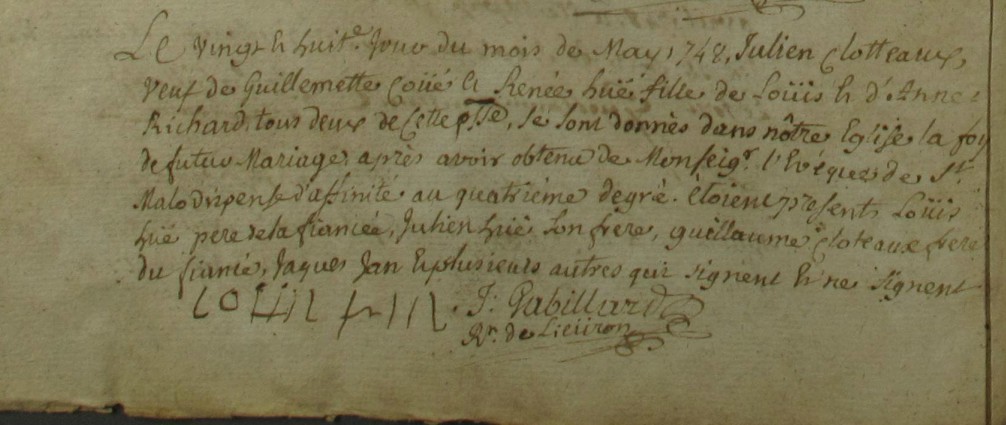 Le vingt et huit.e Jour du mois de May 1748, Julien Clotteaux,
veuf de Guillemette Coüé et Renée hüé fille de Loüis et d'Anne
Richard, tous deux de cette psse, se sont donnés dans nôtre Eglise la foy
de futur Mariage, après avoir obtenu de Monseigr. l'Evéque de St.
Malo dispense d'affinité au quatriéme degré. Etoient presents Loüis
hüé pere de la fiancée, Julien hüé son frere, guillaume Cloteaux frere
du fiancé, Jaques Jan et plusieurs autres qui signent et ne signent
Louis hué. J: Gabillard
Rr. de Lieuron